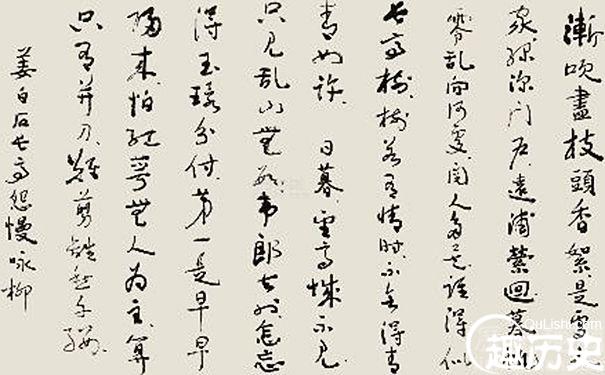 漸吹盡枝頭香絮是處人
家綠深門戶遠浦縈迴暮帆
零乱向何處閱人多矣誰得似
長亭樹樹若有情時不會得青
青如許 日暮望高城不見
只見乱山無數韋郎去也怎忘
得玉環分付第一是早早
歸來怕紅萼無人為主算
只有并刀難剪離愁千縷
姜白石長亭怨慢詠柳
QuLishi.com
趣历史